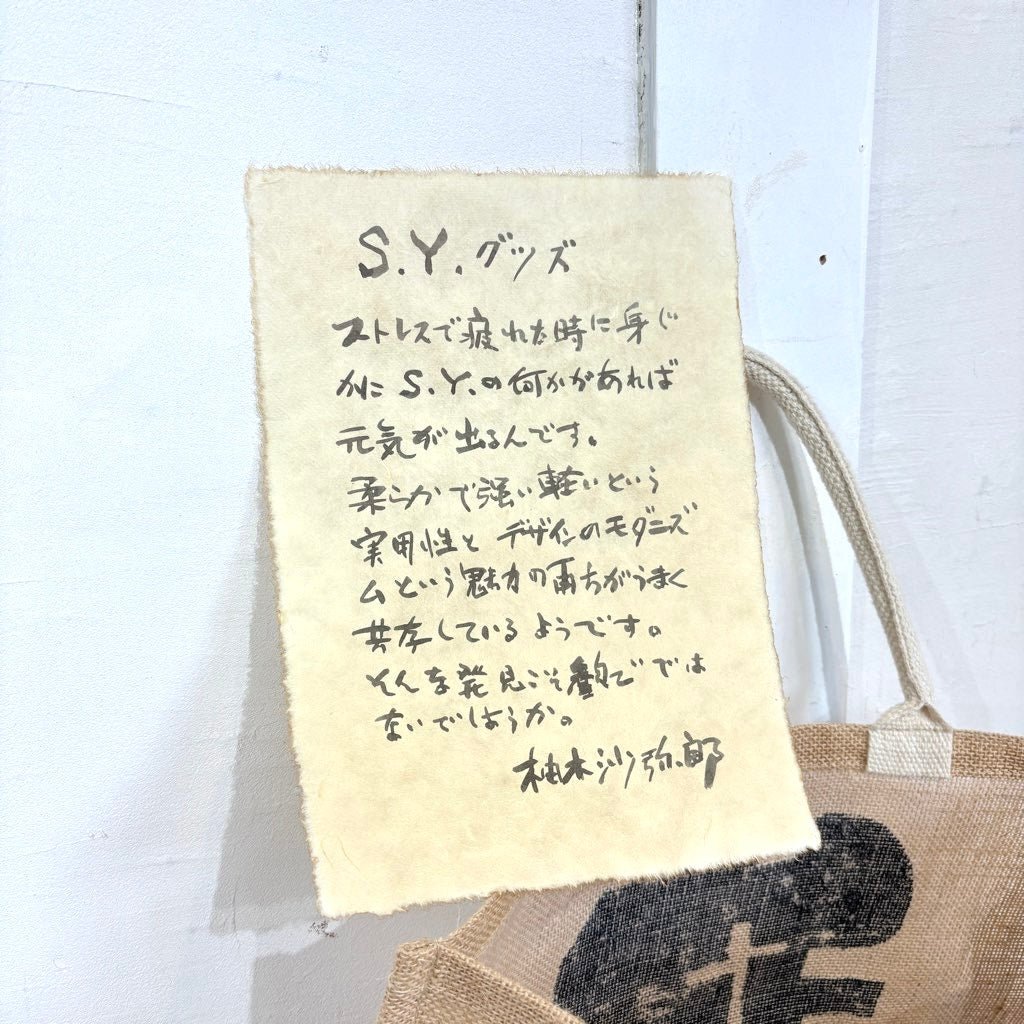 S.Y.グッズ
ストレスで疲れた時に身じ
かに S.Y.の何かがあれば
元気が出るんです。
柔らかで強い軽いという
実用性と デザインのモダニズ
ムという魅力の両方がうまく
共存しているようです。
そんな発見こそ
ないでしょうか。
柚木沙弥郎